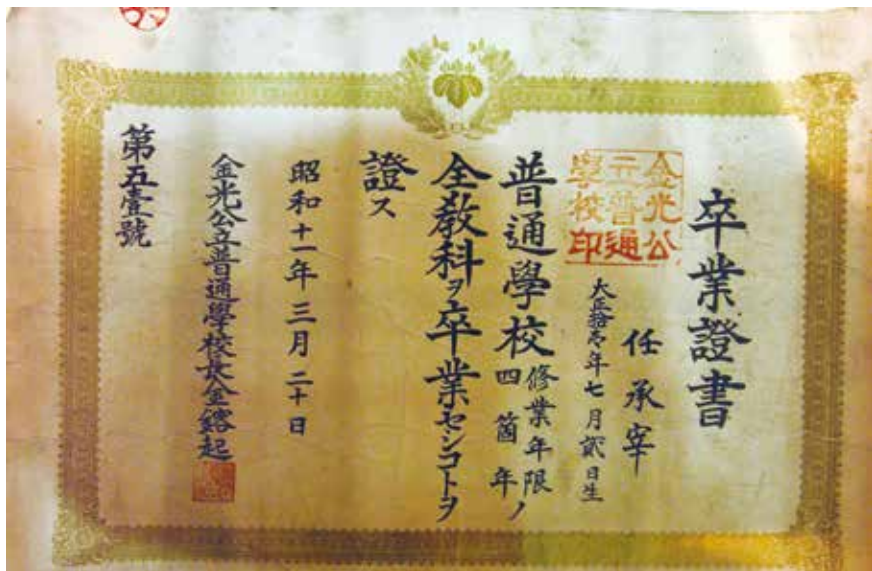 卒業證書
任承宰
大正拾壱年七月貳日生
金光公
立普通
學校印
普通學校修業年限四箇年ノ
全教科ヲ卒業セシコトヲ
證ス
昭和十一年三月二十日
金光公立普通學校長金鎔起
第五壹號